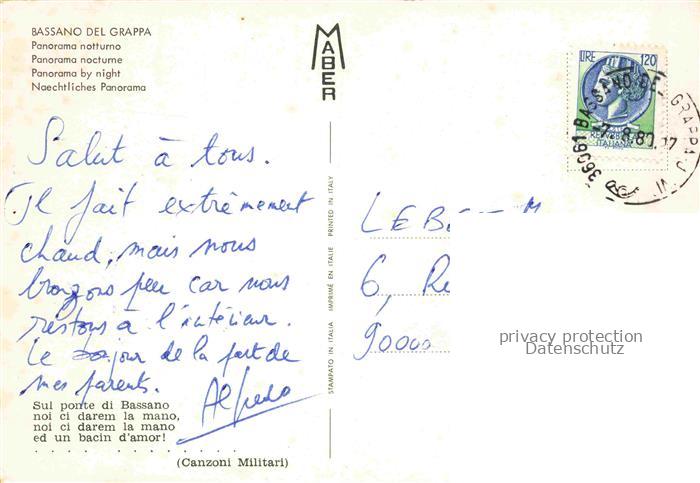 BASSANO DEL GRAPPA
Panorama notturno
Panorama nocturne
Panorama by night
Naechtliches Panorama
MABER
LIRE 120
REPUBBLICA
ITALIANA
36061 BASSANO DEL GRAPPA
7.8.80.17
Salut à tous.
Il fait extrèmement
chaud, mais nous
bronzons peu car nous
restons à l'intérieur.
Le jour de la part de
mes parents.
Alfredo
Sul ponte di Bassano
noi ci darem la mano,
noi ci darem la mano
ed un bacin d'amor!
. . . . . . . . . . . . . .
(Canzoni Militari)
STAMPATO IN ITALIA IMPRIMÉ EN ITALIE PRINTED IN ITALY
6,
90000
privacy protection
Datenschutz